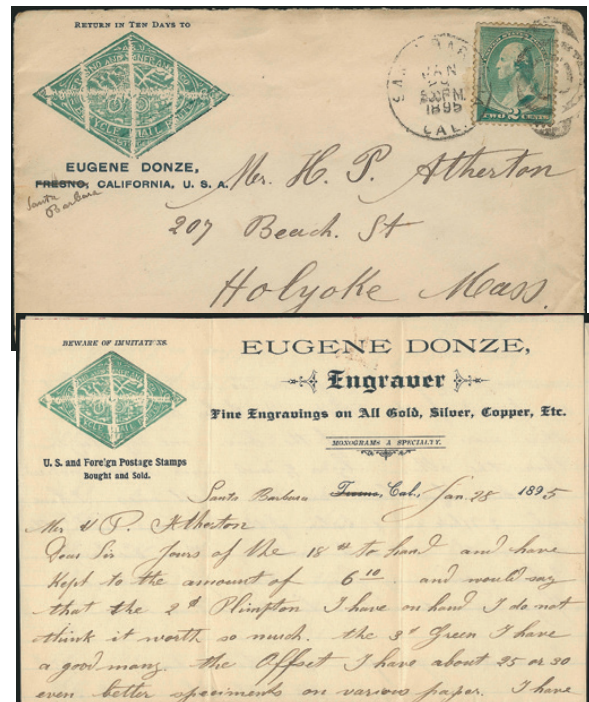 RETURN IN TEN DAYS TO
BICYCLE MAIL ROUTE
EUGENE DONZE,
FRESNO, CALIFORNIA, U. S. A.
Santa
Barbara
JAN
2 30 PM
1895
CAL.
TWO 2 CENTS
Mr. H. P. Atherton
207 Beach. St
Holyoke Mass.
BEWARE OF IMITATIONS.
U. S. and Foreign Postage Stamps
Bought and Sold.
EUGENE DONZE,
Engraver
Fine Engravings on All Gold, Silver, Copper, Etc.
MONOGRAMS A SPECIALTY.
Santa Barbara Fresno, Cal., Jan. 28 1895
Mr H P. Atherton
Dear Sir Yours of the 18th to hand and have
Kept to the amount of 6 10 and would say
that the 2¢ Plimpton I have on hand I do not
think it worth so much. the 3¢ Green I have
a good many. the Offset I have about 25 or 30
even better speciments on various paper. I have